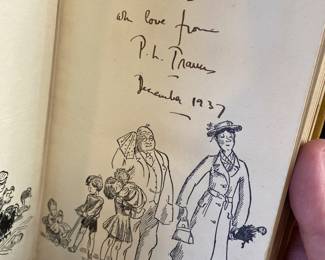 with love from
P. L. Travers
December 1937